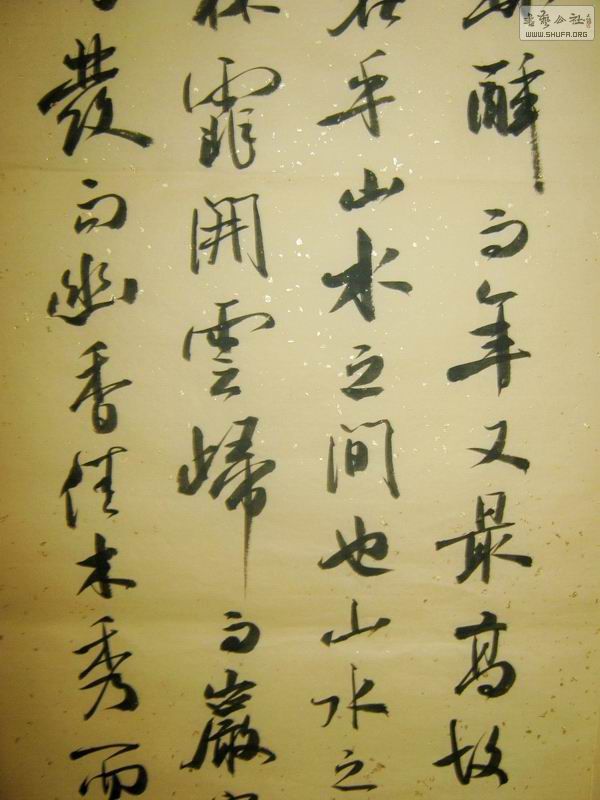 醉而年又最高故
在乎山水之間也山水之
林霏開雲歸而巖
發而幽香佳木秀而
書藝公社
WWW.SHUFA.ORG